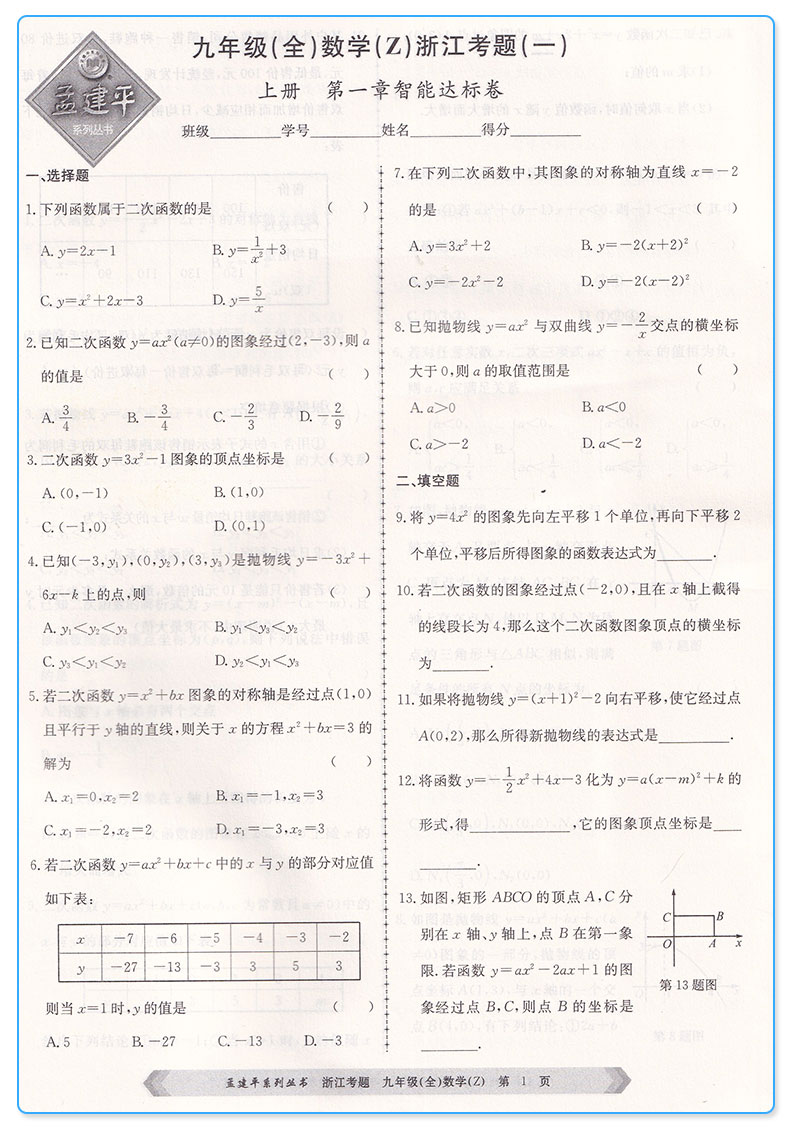 九年级(全)数学(Z)浙江考题(一)
孟建平
系列丛书
上册 第一章智能达标卷
班级________学号________姓名________得分________
一、选择题
1.下列函数属于二次函数的是 ( )
A. y=2x-1 B. y=1/x²+3
C. y=x²+2x-3 D. y=5/x
2.已知二次函数 y=ax²(a≠0)的图象经过(2,-3),则 a
的值是 ( )
A. 3/4 B. -3/4 C. -2/3 D. -2/9
3.二次函数 y=3x²-1 图象的顶点坐标是 ( )
A. (0,-1) B. (1,0)
C. (-1,0) D. (0,1)
4.已知(-3,y₁),(0,y₂),(3,y₃)是抛物线 y=-3x²+
6x-k 上的点,则 ( )
A. y₁<y₂<y₃ B. y₁<y₃<y₂
C. y₃<y₁<y₂ D. y₂<y₁<y₃
5.若二次函数 y=x²+bx 图象的对称轴是经过点(1,0)
且平行于 y 轴的直线,则关于 x 的方程 x²+bx=3 的
解为 ( )
A. x₁=0,x₂=2 B. x₁=-1,x₂=3
C. x₁=-2,x₂=2 D. x₁=-3,x₂=3
6.若二次函数 y=ax²+bx+c 中的 x 与 y 的部分对应值
如下表:
x -7 -6 -5 -4 -3 -2
y -27 -13 -3 3 5 3
则当 x=1 时,y 的值是 ( )
A. 5 B. -27 C. -13 D. -3
7.在下列二次函数中,其图象的对称轴为直线 x=-2
的是 ( )
A. y=3x²+2 B. y=-2(x+2)²
C. y=-2x²-2 D. y=-2(x-2)²
8.已知抛物线 y=ax² 与双曲线 y=-2/x交点的横坐标
大于 0,则 a 的取值范围是 ( )
A. a>0 B. a<0
C. a>-2 D. a<-2
二、填空题
9.将 y=4x² 的图象先向左平移 1 个单位,再向下平移 2
个单位,平移后所得图象的函数表达式为________.
10.若二次函数的图象经过点(-2,0),且在 x 轴上截得
的线段长为 4,那么这个二次函数图象顶点的横坐标
为________.
11.如果将抛物线 y=(x+1)²-2 向右平移,使它经过点
A(0,2),那么所得新抛物线的表达式是________.
12.将函数 y=-1/2x²+4x-3 化为 y=a(x-m)²+k 的
形式,得________,它的图象顶点坐标是____
________.
13.如图,矩形 ABCO 的顶点 A,C 分
别在 x 轴、y 轴上,点 B 在第一象
限.若函数 y=ax²-2ax+1 的图
象经过点 B,C,则点 B 的坐标是
________.
C B
O A x
第13题图
孟建平系列丛书 浙江考题 九年级(全)数学(Z) 第 1 页